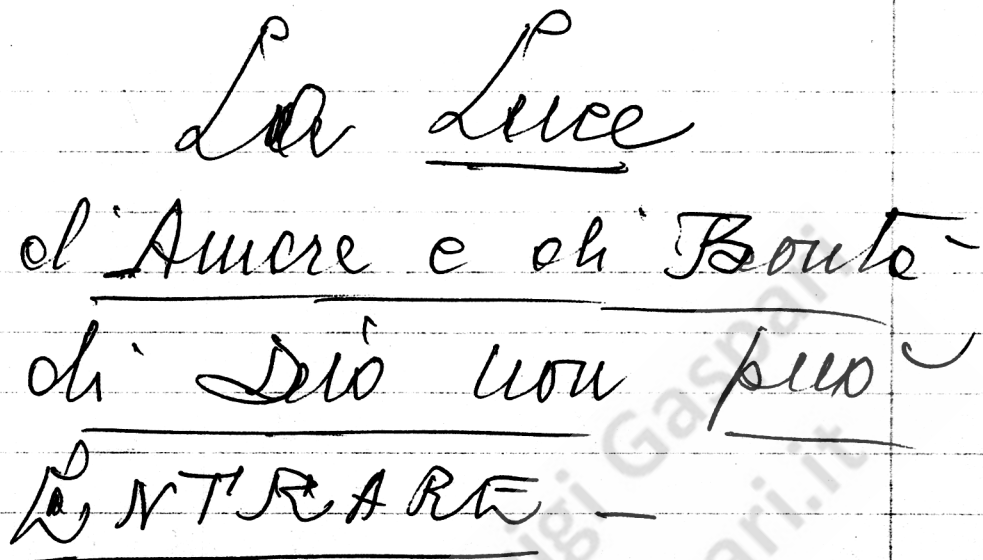 La Luce
d'Amore e di Bontà
di Dio non può
ENTRARE -